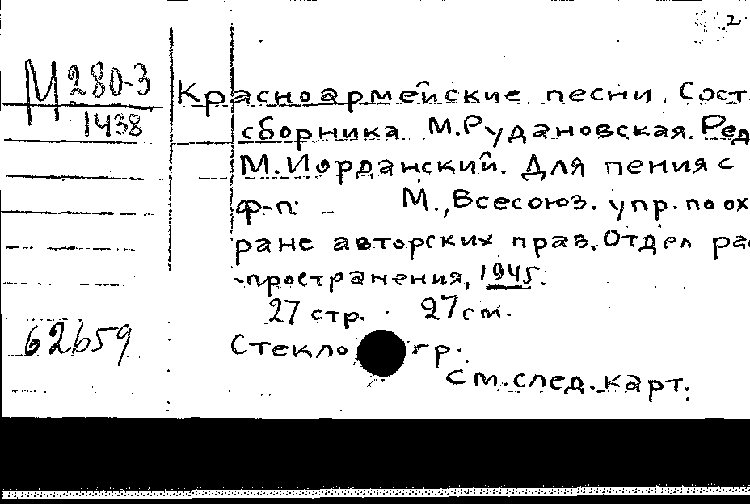 2.
М 280-3
1438
Красноармейские песни. Сост.
сборника М.Рудановская. Ред
М.Иорданский. Для пения с
ф-п. М., Всесоюз. упр. по ох
ране авторских прав. Отдел рас
-пространения, 1945.
27 стр. 27 см.
62659
Стекло гр.
См. след. карт.